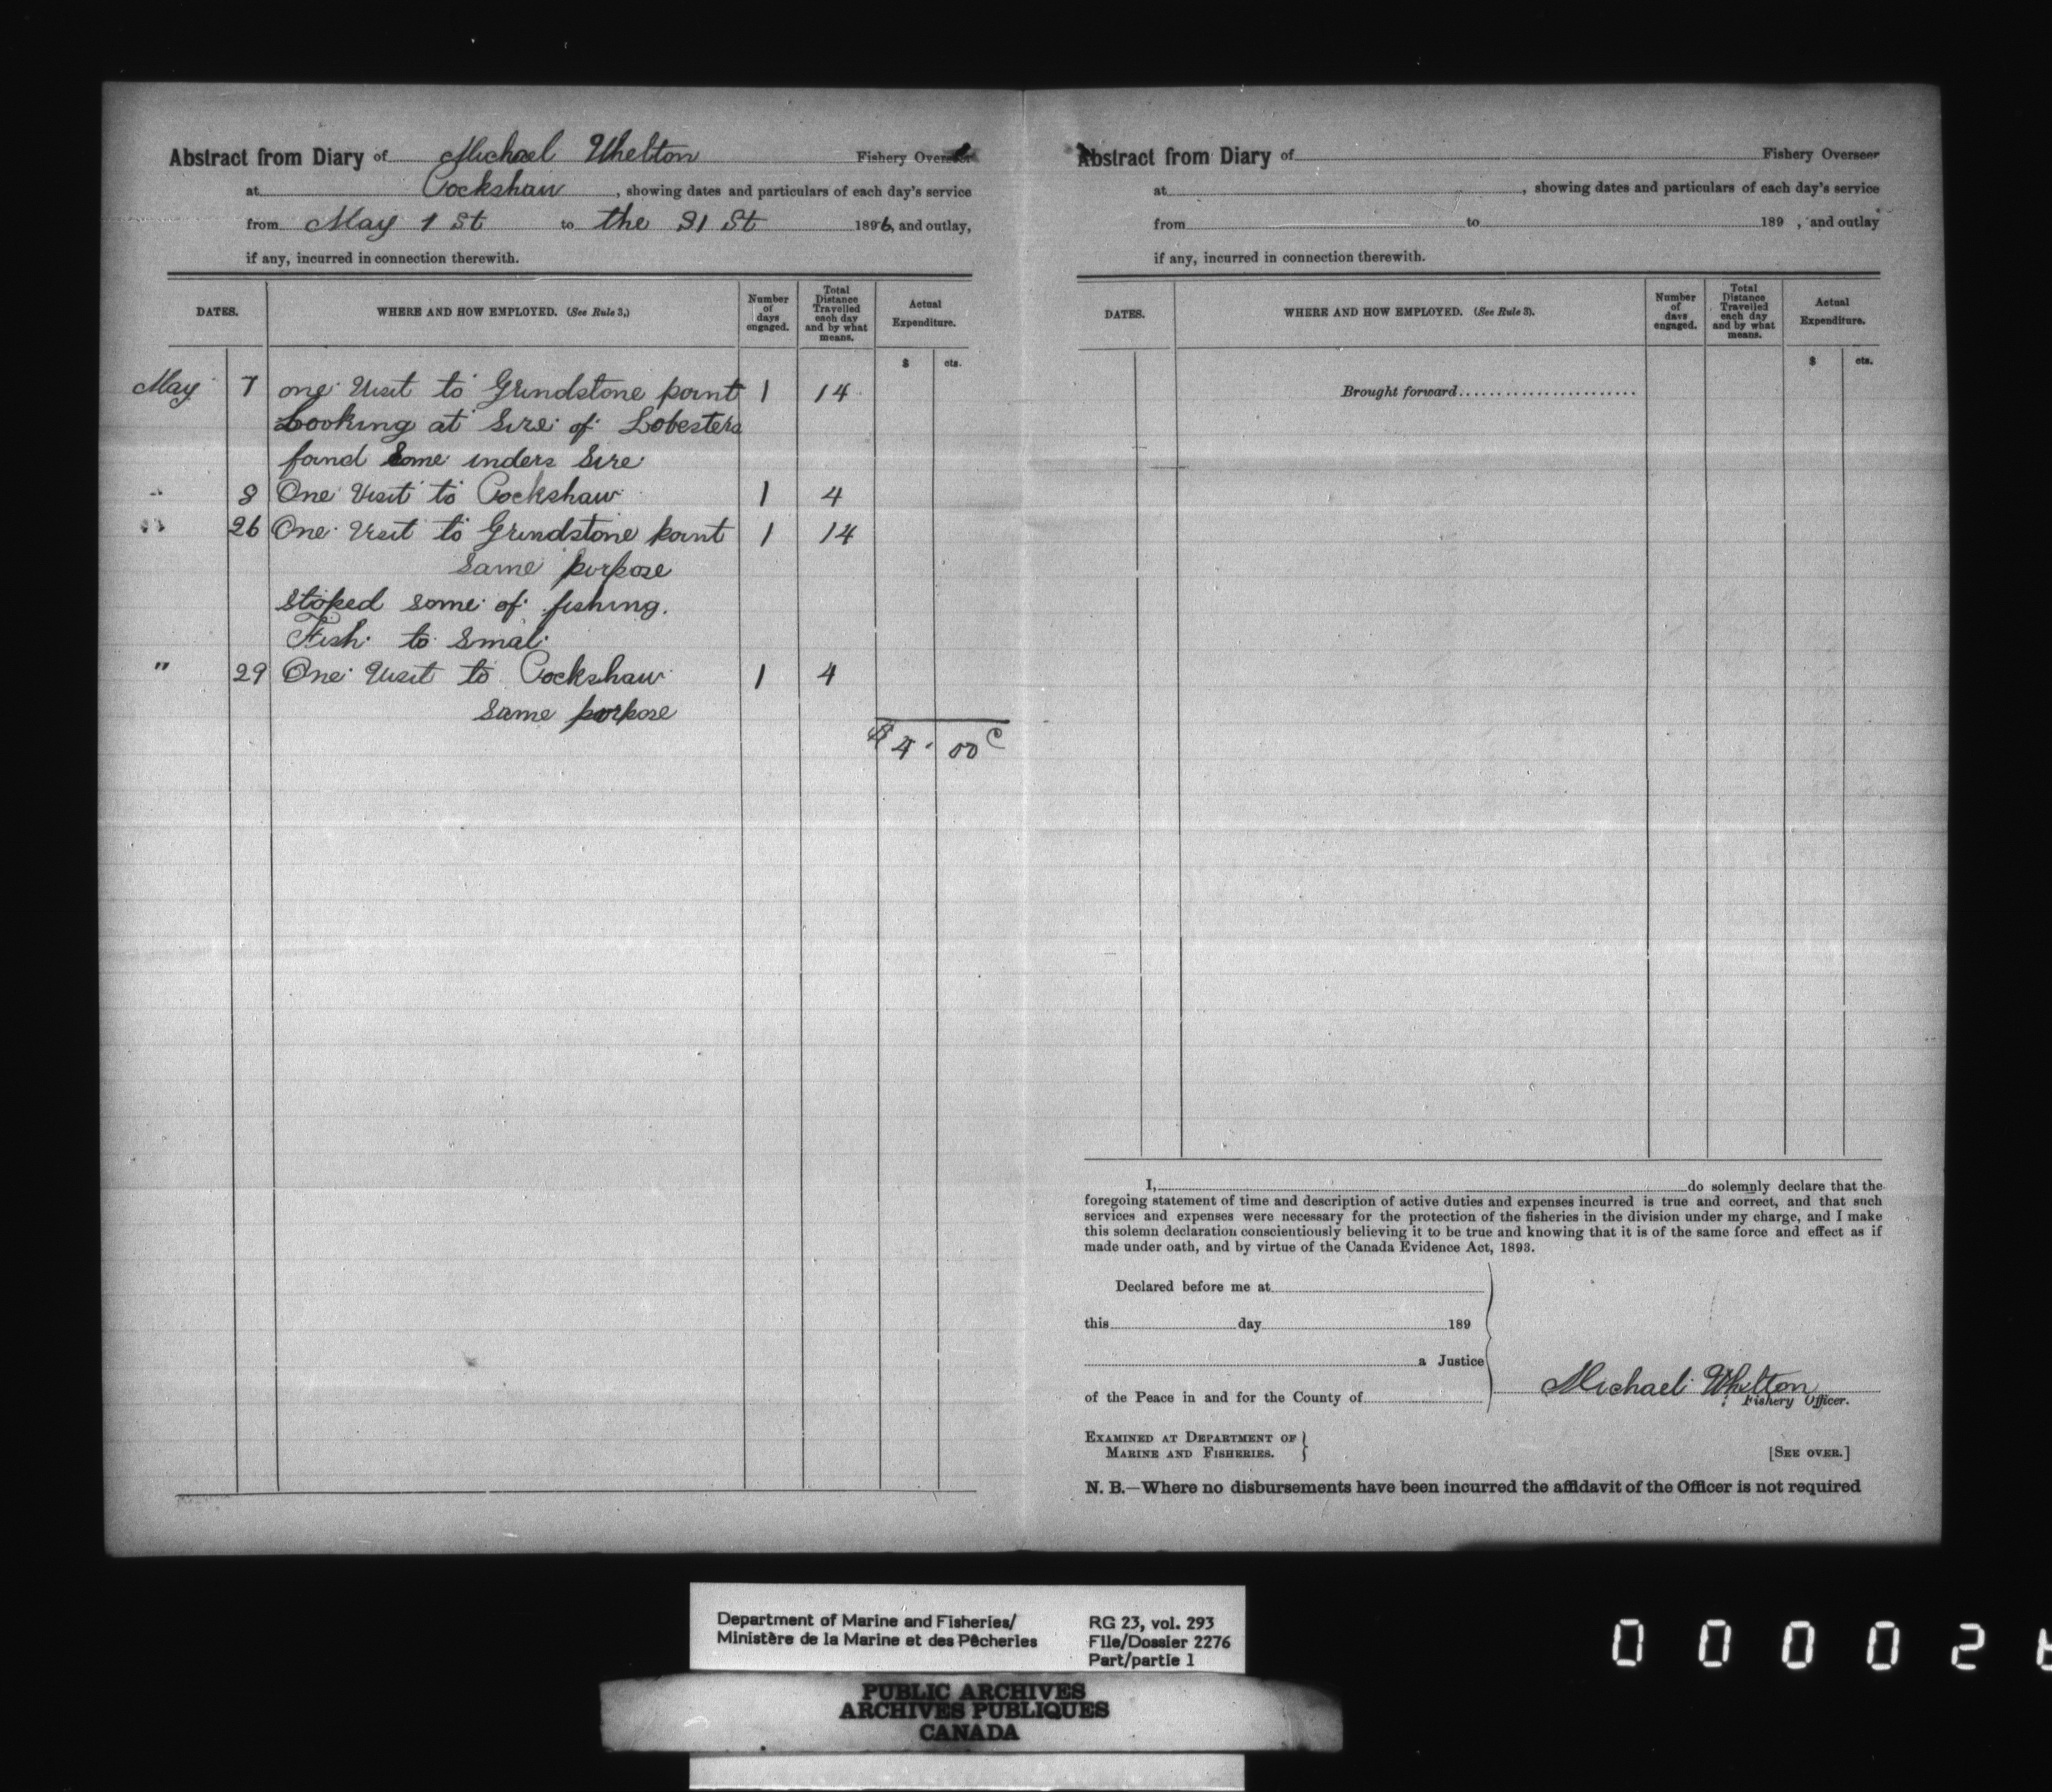 Abstract from Diary of Michael Whelton Fishery Overseer
at Cockshaw, showing dates and particulars of each day's service
from May 1 St to the 31 St 1896, and outlay,
if any, incurred in connection therewith.
DATES. WHERE AND HOW EMPLOYED. (See Rule 3,) Number of days engaged. Total Distance Travelled each day and by what means. Actual Expenditure.
$ cts.
May 7 one Visit to Grindstone point 1 14
Looking at Size of Lobesters
found Some inders Size
" 8 One Visit to Cockshaw 1 4
" 26 One Visit to Grindstone point 1 14
Same porpose
Stoped some of fishing.
Fish to Smal
" 29 One Visit to Cockshaw 1 4
Same porpose
$ 4. 00 c
Abstract from Diary of Fishery Overseer
at , showing dates and particulars of each day's service
from to 189 , and outlay
if any, incurred in connection therewith.
DATES. WHERE AND HOW EMPLOYED. (See Rule 3). Number of days engaged. Total Distance Travelled each day and by what means. Actual Expenditure.
$ cts.
Brought forward......................
I, do solemnly declare that the
foregoing statement of time and description of active duties and expenses incurred is true and correct, and that such
services and expenses were necessary for the protection of the fisheries in the division under my charge, and I make
this solemn declaration conscientiously believing it to be true and knowing that it is of the same force and effect as if
made under oath, and by virtue of the Canada Evidence Act, 1893.
Declared before me at
this day 189
a Justice
of the Peace in and for the County of
Michael Whelton
Fishery Officer.
EXAMINED AT DEPARTMENT OF
MARINE AND FISHERIES.
[SEE OVER.]
N. B.—Where no disbursements have been incurred the affidavit of the Officer is not required
Department of Marine and Fisheries/ RG 23, vol. 293
Ministère de la Marine et des Pêcheries File/Dossier 2276
Part/partie 1
PUBLIC ARCHIVES
ARCHIVES PUBLIQUES
CANADA
0 0 0 0 2